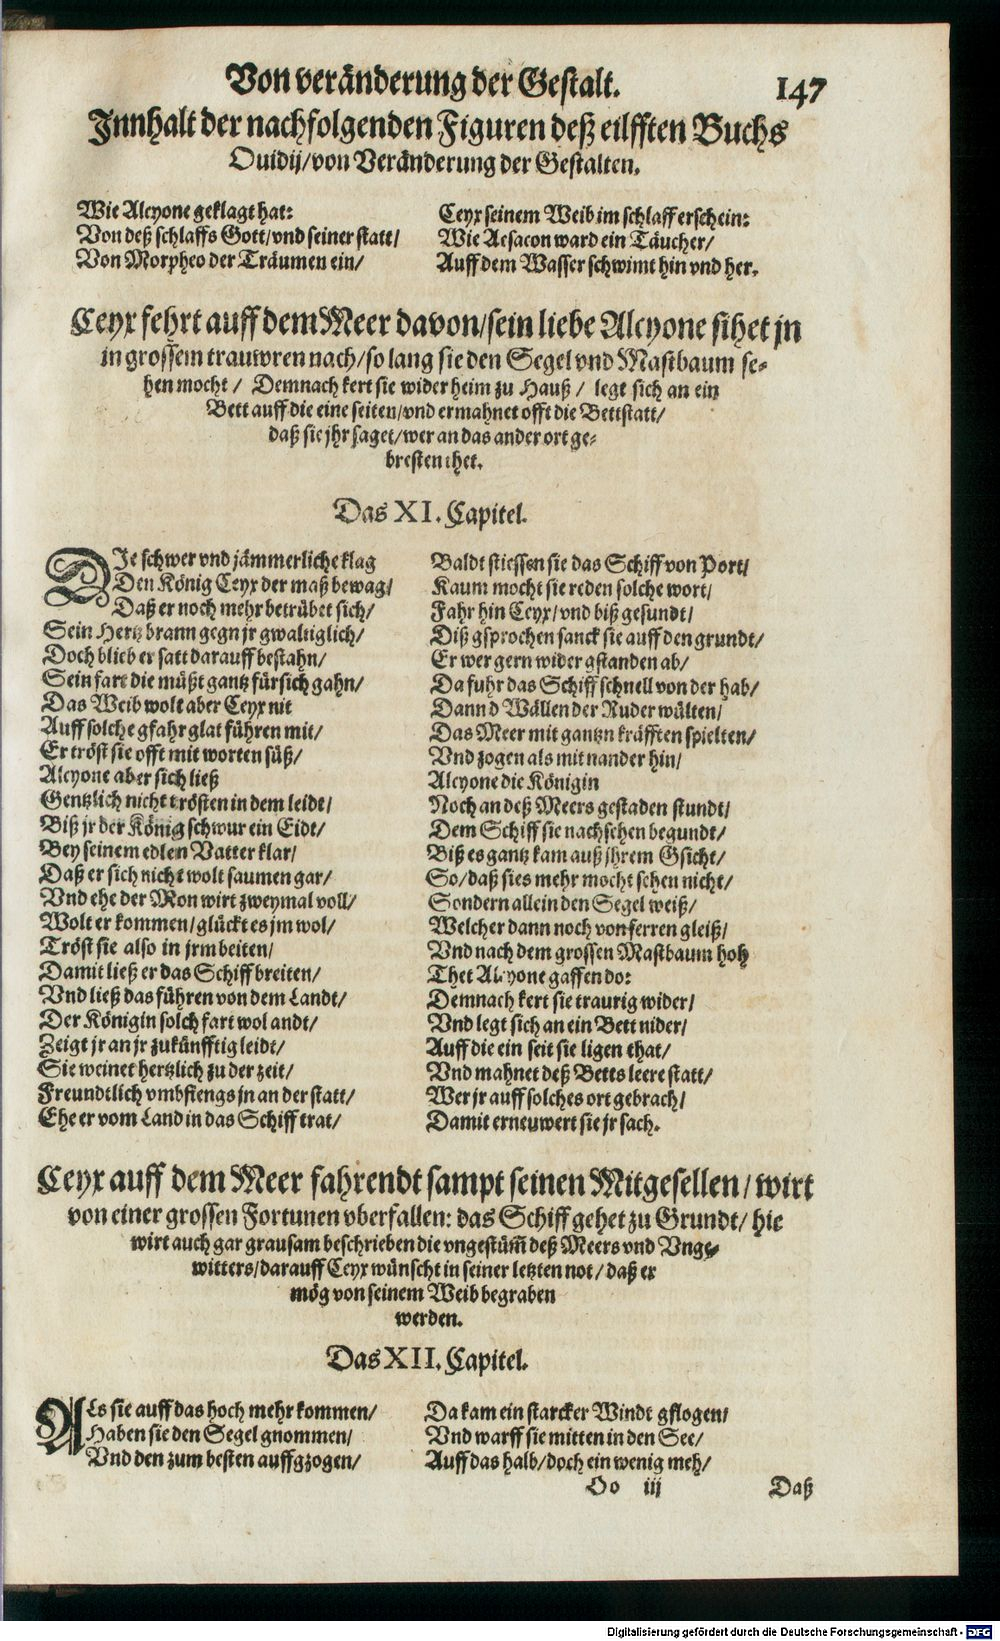 Von veränderung der Gestalt. 147
Innhalt der nachfolgenden Figuren deß eilfften Buchs
Ouidij/von Veränderung der Gestalten.
Wie Alcyone geklagt hat:
Von deß schlaffs Gott/vnd seiner statt/
Von Morpheo der Träumen ein/
Ceyx seinem Weib im schlaff erschein:
Wie Aesacon ward ein Täucher/
Auff dem Wasser schwimt hin vnd her.
Ceyx fehrt auff dem Meer davon/sein liebe Alcyone sihet jn
in grossem trauwren nach/so lang sie den Segel vnd Mastbaum se-
hen mocht/ Demnach kert sie wider heim zu Hauß/ legt sich an ein
Bett auff die eine seiten/vnd ermahnet offt die Bettstatt/
daß sie jhr saget/wer an das ander ort ge-
bresten thet.
Das XI. Capitel.
DIe schwer vnd jämmerliche klag
Den König Ceyx der maß bewag/
Daß er noch mehr betrübet sich/
Sein Hertz brann gegn jr gwaltiglich/
Doch blieb er satt darauff bestahn/
Sein fart die müßt gantz fürsich gahn/
Das Weib wolt aber Ceyx nit
Auff solche gfahr glat führen mit/
Er tröst sie offt mit worten süß/
Alcyone aber sich ließ
Gentzlich nicht trösten in dem leidt/
Biß jr der König schwur ein Eidt/
Bey seinem edlen Vatter klar/
Daß er sich nicht wolt saumen gar/
Vnd ehe der Mon wirt zweymal voll/
Wolt er kommen/glückt es jm wol/
Tröst sie also in jrm beiten/
Damit ließ er das Schiff breiten/
Vnd ließ das führen von dem Landt/
Der Königin solch fart wol andt/
Zeigt jr an jr zukünfftig leidt/
Sie weinet hertzlich zu der zeit/
Freundtlich vmbfiengs jn an der statt/
Ehe er vom Land in das Schiff trat/
Baldt stiessen sie das Schiff von Port/
Kaum mocht sie reden solche wort/
Fahr hin Ceyx/vnd biß gesundt/
Diß gsprochen sanck sie auff den grundt/
Er wer gern wider gstanden ab/
Da fuhr das Schiff schnell von der hab/
Dann d Wällen der Ruder wülten/
Das Meer mit gantzn kräfften spielten/
Vnd zogen als mit nander hin/
Alcyone die Königin
Noch an deß Meers gestaden stundt/
Dem Schiff sie nachsehen begundt/
Biß es gantz kam auß jhrem Gsicht/
So/daß sies mehr mocht sehen nicht/
Sondern allein den Segel weiß/
Welcher dann noch von ferren gleiß/
Vnd nach dem grossen Mastbaum hoh
Thet Alcyone gaffen do:
Demnach kert sie traurig wider/
Vnd legt sich an ein Bett nider/
Auff die ein seit sie ligen that/
Vnd mahnet deß Betts leere statt/
Wer jr auff solches ort gebrach/
Damit erneuwert sie jr sach.
Ceyx auff dem Meer fahrendt sampt seinen Mitgesellen/wirt
von einer grossen Fortunen vberfallen: das Schiff gehet zu Grundt/ hie
wirt auch gar grausam beschrieben die vngestüm̃ deß Meers vnd Vnge-
witters/darauff Ceyx wünscht in seiner letzten not/daß er
mög von seinem Weib begraben
werden.
Das XII. Capitel.
ALs sie auff das hoch mehr kommen/
Haben sie den Segel gnommen/
Vnd den zum besten auffgzogen/
Da kam ein starcker Windt gflogen/
Vnd warff sie mitten in den See/
Auff das halb/doch ein wenig meh/
Oo iij Daß
Digitalisierung gefördert durch die Deutsche Forschungsgemeinschaft - DFG